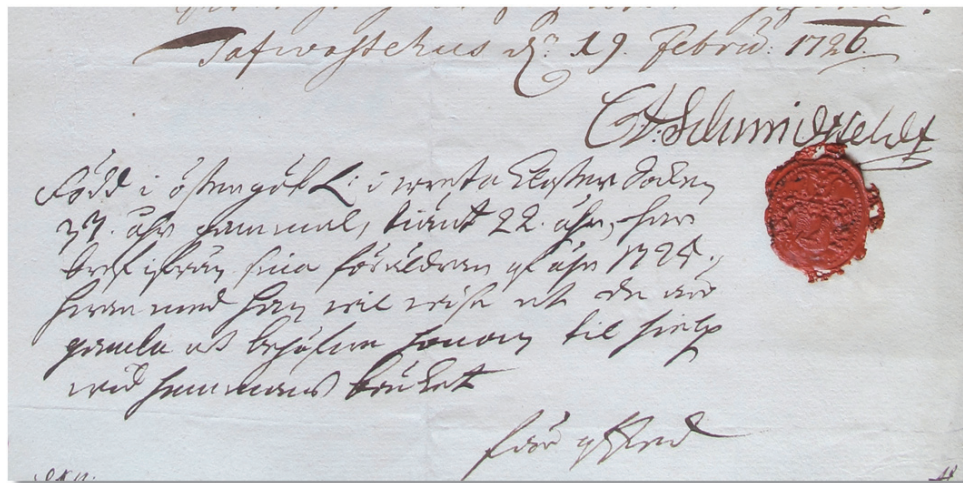 Tafwastehus d: 19. Febru: 1726.
C A: Schmidefeldt
Född i östergöt L: i wreta Closter Sochn
37. åhr gammal, tient 22. åhr, har
bref ifrån sina föräldrar af åhr 1725.,
hwar med han wil wisa at de äro
gamla at behöfwa honom til hielp
wid hemmans bruket
får afsked